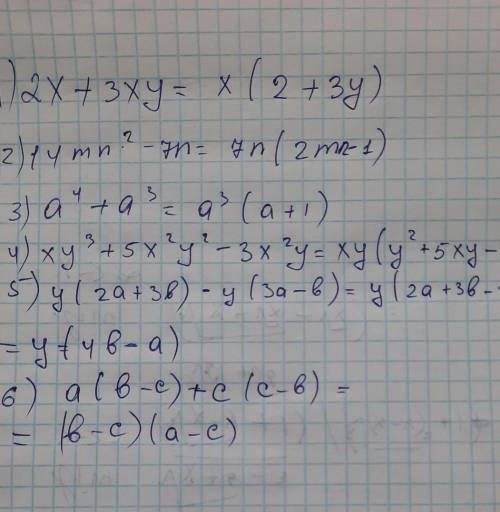 ) 2x + 3xy = x ( 2 + 3y)
2) 14 mn² - 7n = 7n ( 2mn-1)
3) a⁴ + a³ = a³ (a+1)
4) xy³ + 5x²y² - 3x²y = xy(y²+5xy-
5) y( 2a+3в) - y (3a-в) = y(2a+3в-
= y(4в-a)
6) a(в-c)+c(c-в) =
= (в-c)(a-c)